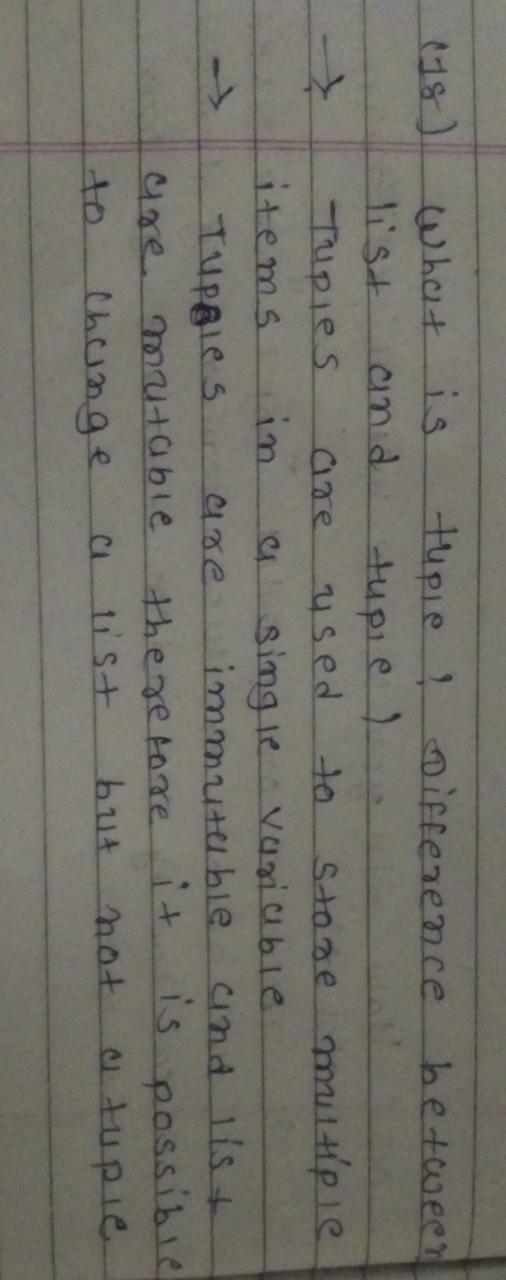 (18) What is tuple ? Difference between
list and tuple ?
→ Tuples are used to store multiple
items in a single variable
→ Tuples are immutable and list
are mutable therefore it is possible
to change a list but not a tuple